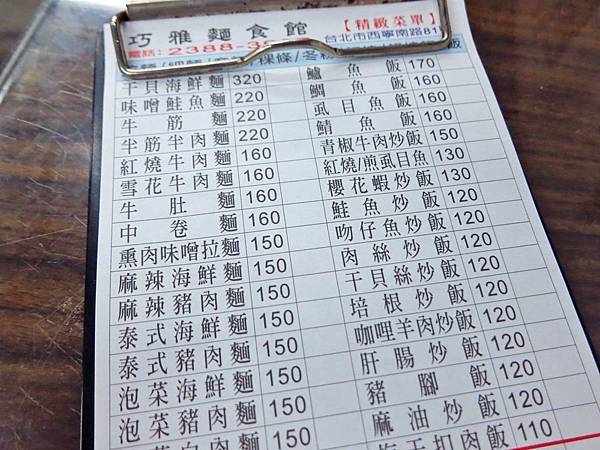 巧雅麵食館
【精緻菜單】
電話:2388-35
台北市西寧南路81
干貝海鮮麵 320
味噌鮭魚麵 220
牛筋麵 220
半筋半肉麵 220
紅燒牛肉麵 160
雪花牛肉麵 160
牛肚麵 160
中卷麵 160
熏肉味噌拉麵 150
麻辣海鮮麵 150
麻辣豬肉麵 150
泰式海鮮麵 150
泰式豬肉麵 150
泡菜海鮮麵 150
泡菜豬肉麵 150
150
鱸魚飯 170
鯛魚飯 160
虱目魚飯 160
鯖魚飯 160
青椒牛肉炒飯 150
紅燒/煎虱目魚 130
櫻花蝦炒飯 130
鮭魚炒飯 120
吻仔魚炒飯 120
肉絲炒飯 120
干貝絲炒飯 120
培根炒飯 120
咖哩羊肉炒飯 120
肝腸炒飯 120
豬腳飯 120
麻油炒飯 120
梅干扣肉飯 110